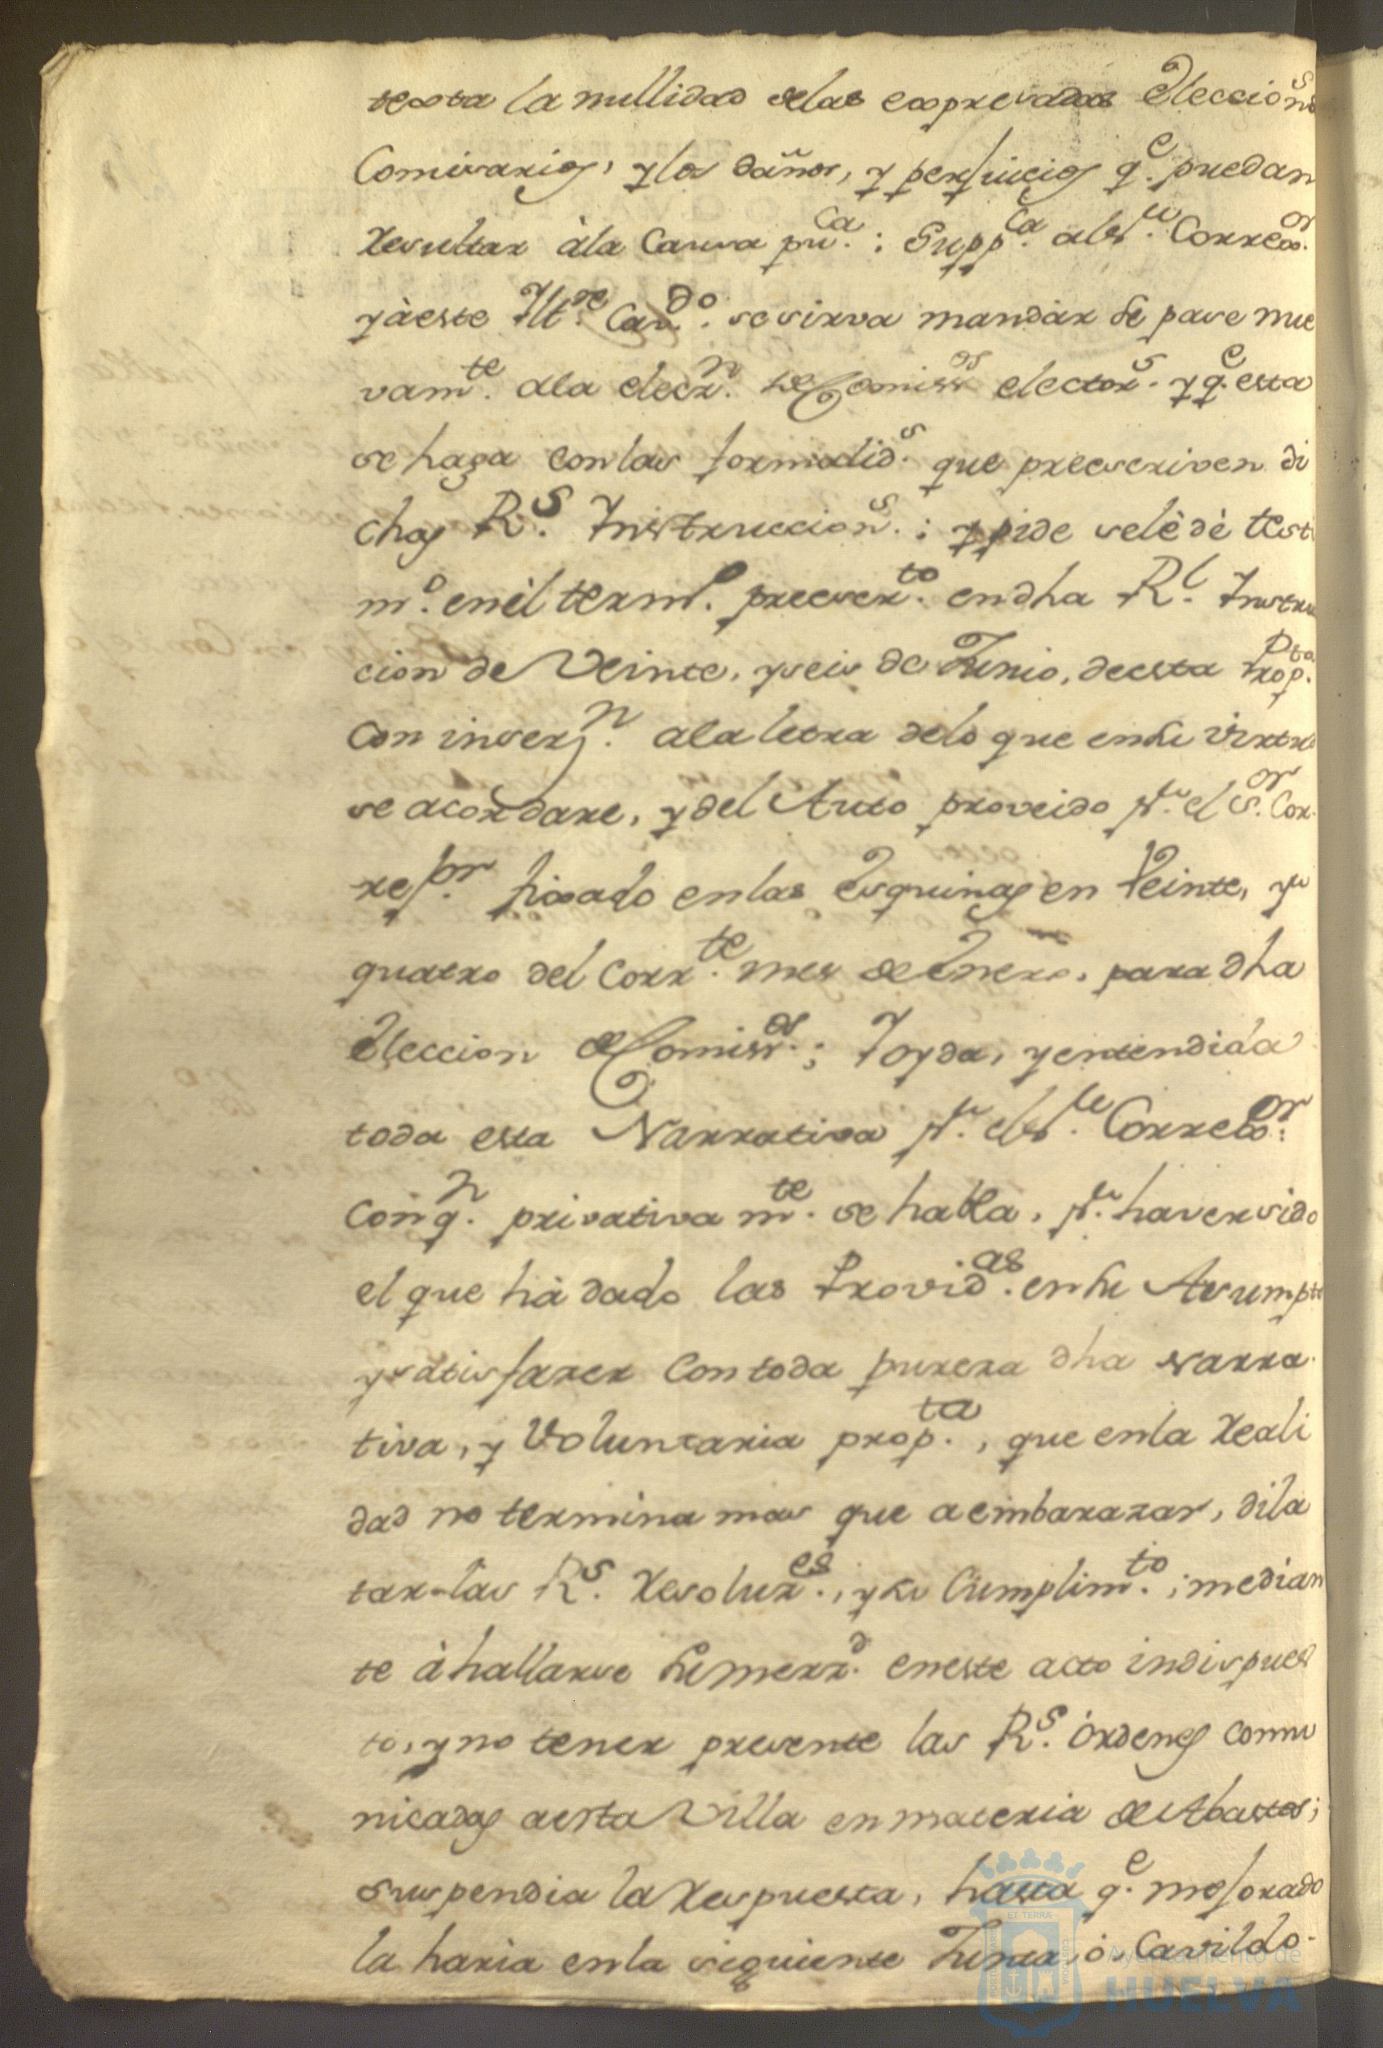 texta la nullidad de las expresadas Eleccion.s
Comisarios, y los daños, y perjuicios q.e puedan
Resultar à la Causa pu.ca: Supp.ca al S.r Correx.or
y à este Ylt.re Cav.do se sirva mandár se pase nue
vam.te a la elecz.n de Comiss.os elector.s y q.e esta
se haga con las formalid.s que preescriven di
chas R.s Ynstruccion.s; y pide se lè dè testi
m.o en èl term.o preescr.to en dha R.l Ynstru
cion de Veinte, y seis de Junio, de esta Prop.ta
con inserz.n a la letra de lo que en su virtud
se acordare, y del Auto proveido p.r el S.or Cor-
reg.or fixado en las Esquinas en Veinte, y
quatro del Corr.te mes de Enero, para dha
Eleccion de Comiss.os; Y oyda, y entendida
toda esta Narrativa p.r el S.r Correx.or
con q.n privativa m.te se habla, p.r haver sido
el que hà dado las Provid.as en su Asumpto
y satisfazer con toda pureza dha narra-
tiva, y Voluntaria prop.ta, que en la Reali
dad no termina mas que a embarazar, dila
tar las R.s Resoluz.es, y su Cumplim.to; median
te à hallarse su merz.d en este acto indispues
to, y no tener presente las R.s órdenes comu
nicadas a esta Villa en materia de Abastos;
suspendia la Respuesta, hasta q.e mejorado
la haria en la siguiente Junta, ò Cavildo.
ET TERRÆ
Ayuntamiento de
HUELVA